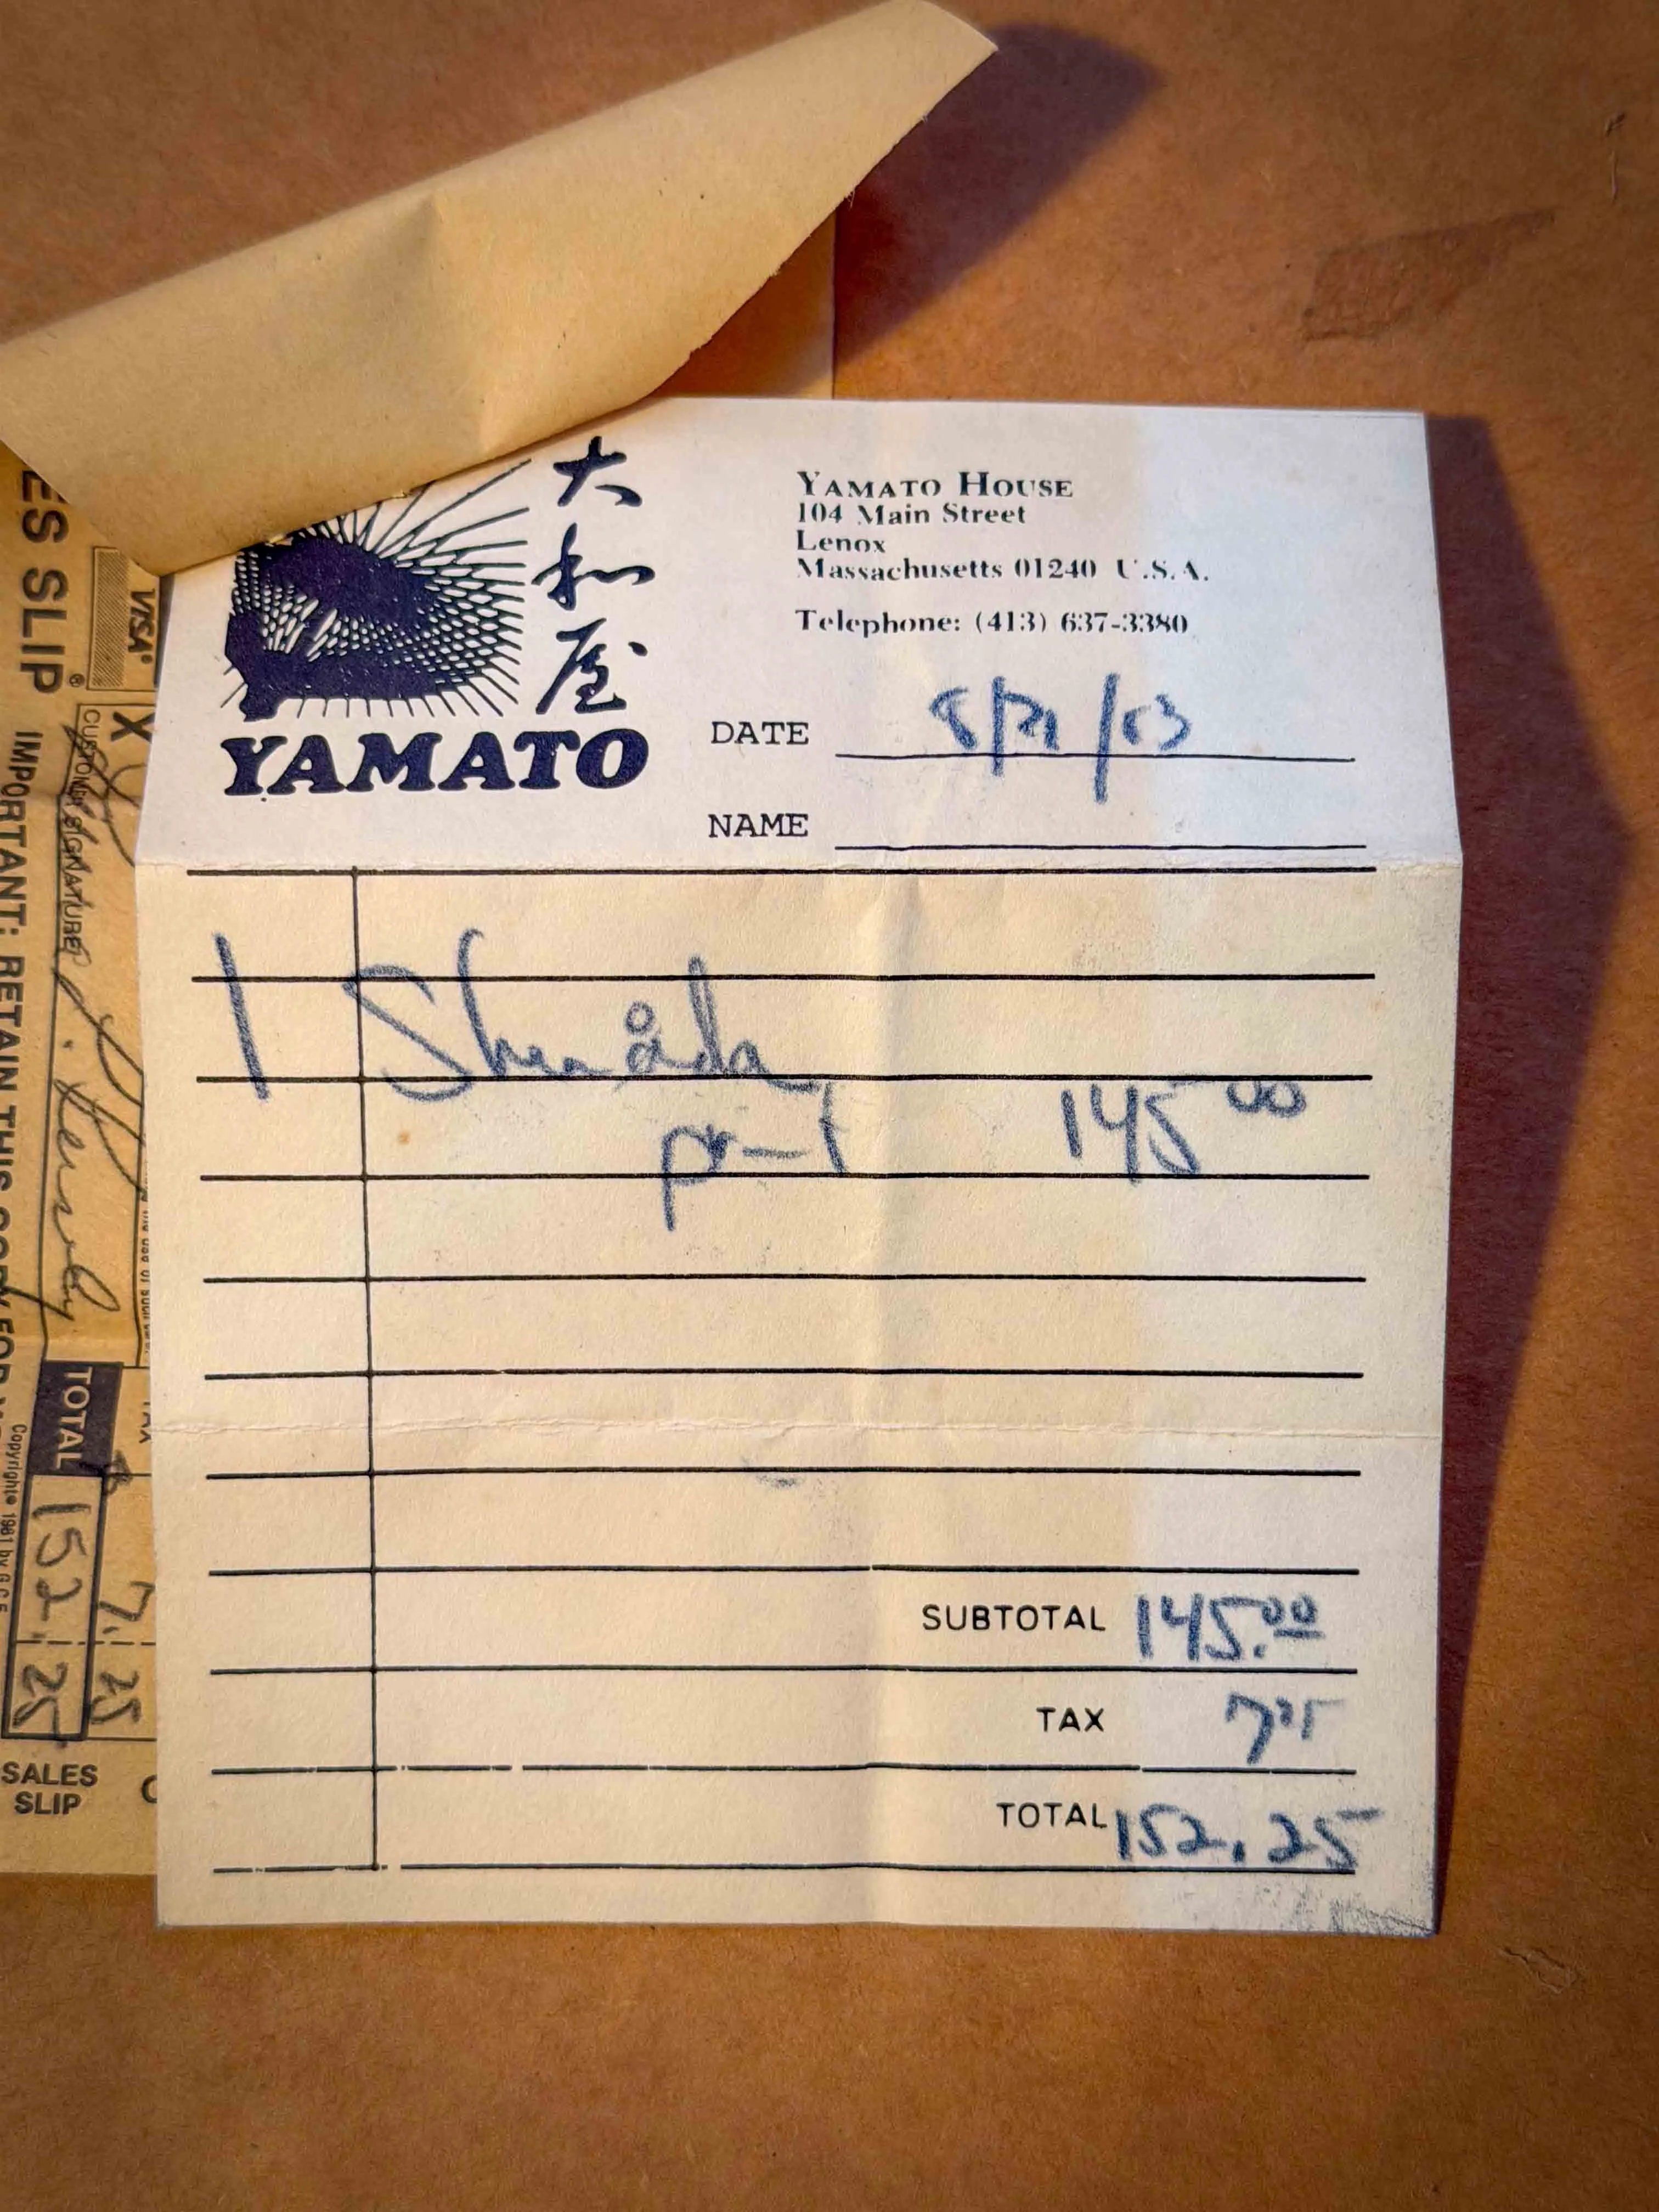 大
和
屋
YAMATO
YAMATO HOUSE
104 Main Street
Lenox
Massachusetts 01240 U.S.A.
Telephone: (413) 637-3380
DATE 8/21/83
NAME
1
145 00
SUBTOTAL 145.00
TAX 7 25
TOTAL 152.25
ES SLIP®
VISA®
X
CUSTOMER SIGNATURE
IMPORTANT: RETAIN THIS COPY FOR
TOTAL 152.25
7.25
Copyright© 1981 by
SALES
SLIP